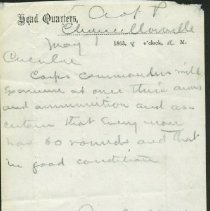 A of P
Head Quarters,
Chancellorsville
May 1863, 8 o'clock, A. M.
Circular
Corps commanders will
examine at once their arms
and ammunition and as-
certain that every man
has 60 rounds and that
in good condition